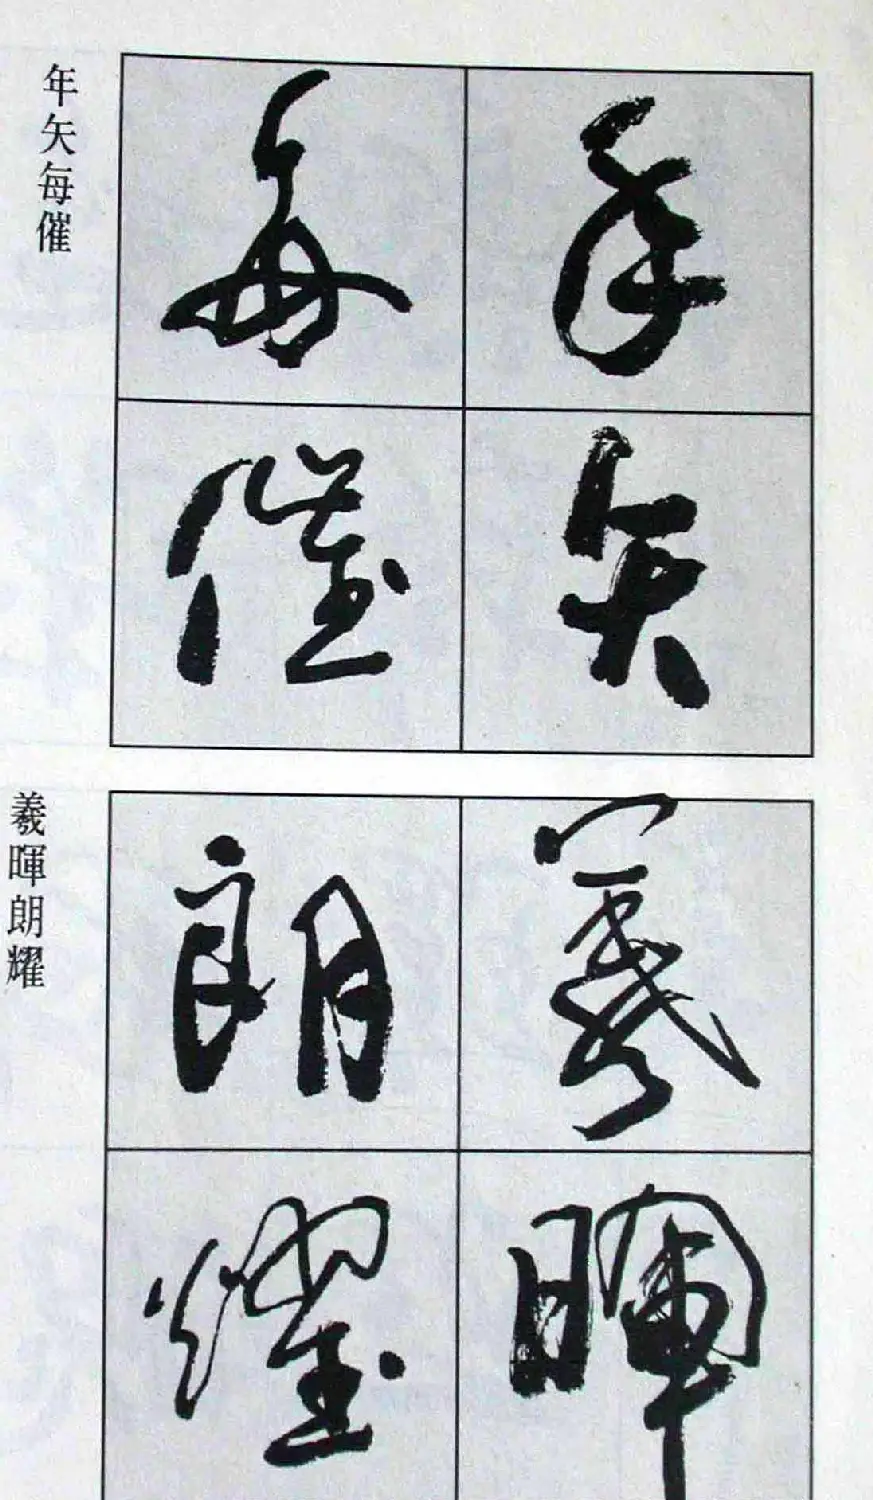 年矢每催
年矢
每催
羲暉朗耀
羲暉
朗耀